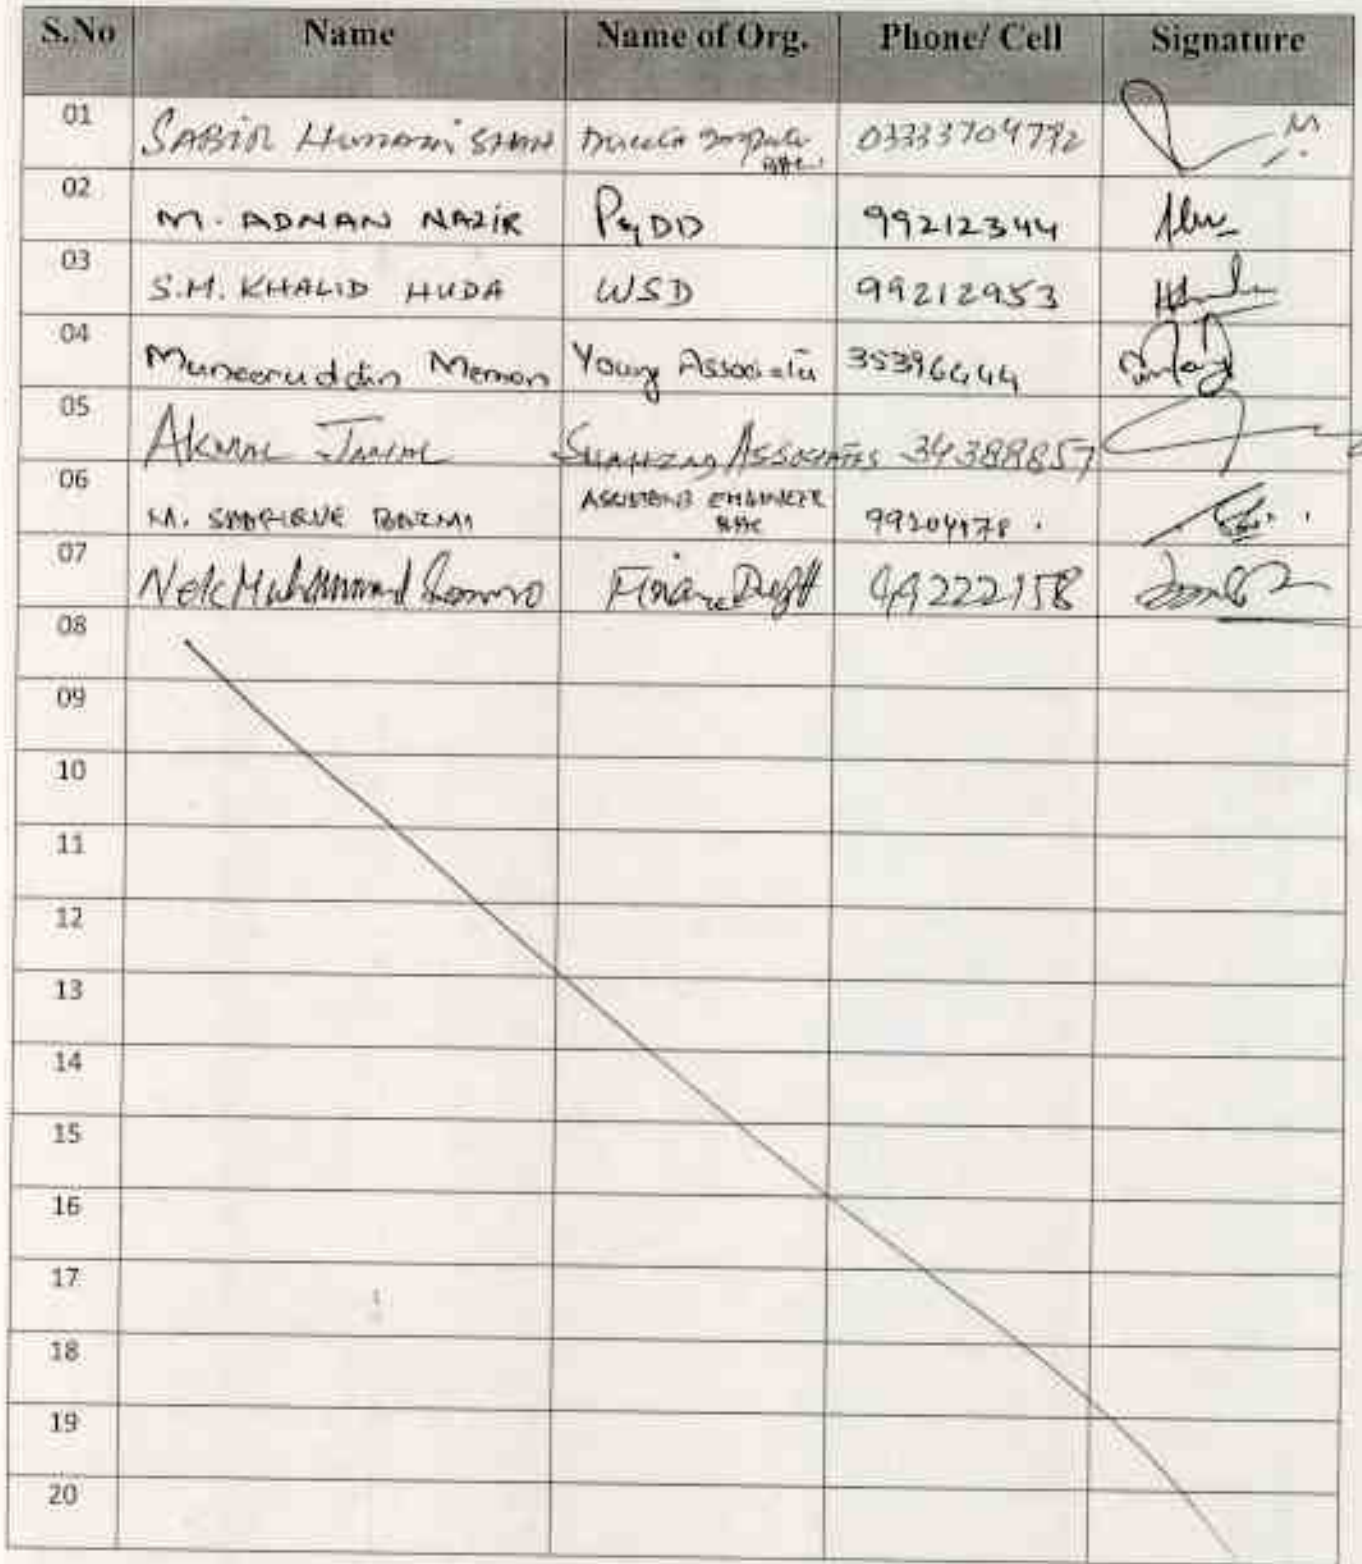 S.No Name Name of Org. Phone/ Cell Signature
01 SABIR SHAH 03333704792
02 M. ADNAN NAZIR P&DD 99212344
03 S.M. KHALID HUDA WSD 99212953
04 Muneeruddin Memon Young Associate 35396444
05 Akmal Jamal SHAHZAD ASSOCIATES 34388857
06 M. SHAFIQUE ASSISTANT ENGINEER 99204178
07 Nek Muhammad Soomro Finance Deptt 99222158
08
09
10
11
12
13
14
15
16
17
18
19
20